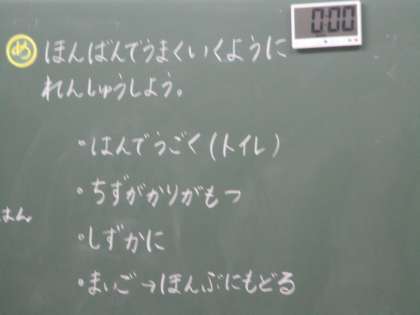 0:00
め ほんばんでうまくいくように
れんしゅうしよう。
・はんでうごく(トイレ)
・ちずがかりがもつ
はん
・しずかに
・まいご→ほんぶにもどる